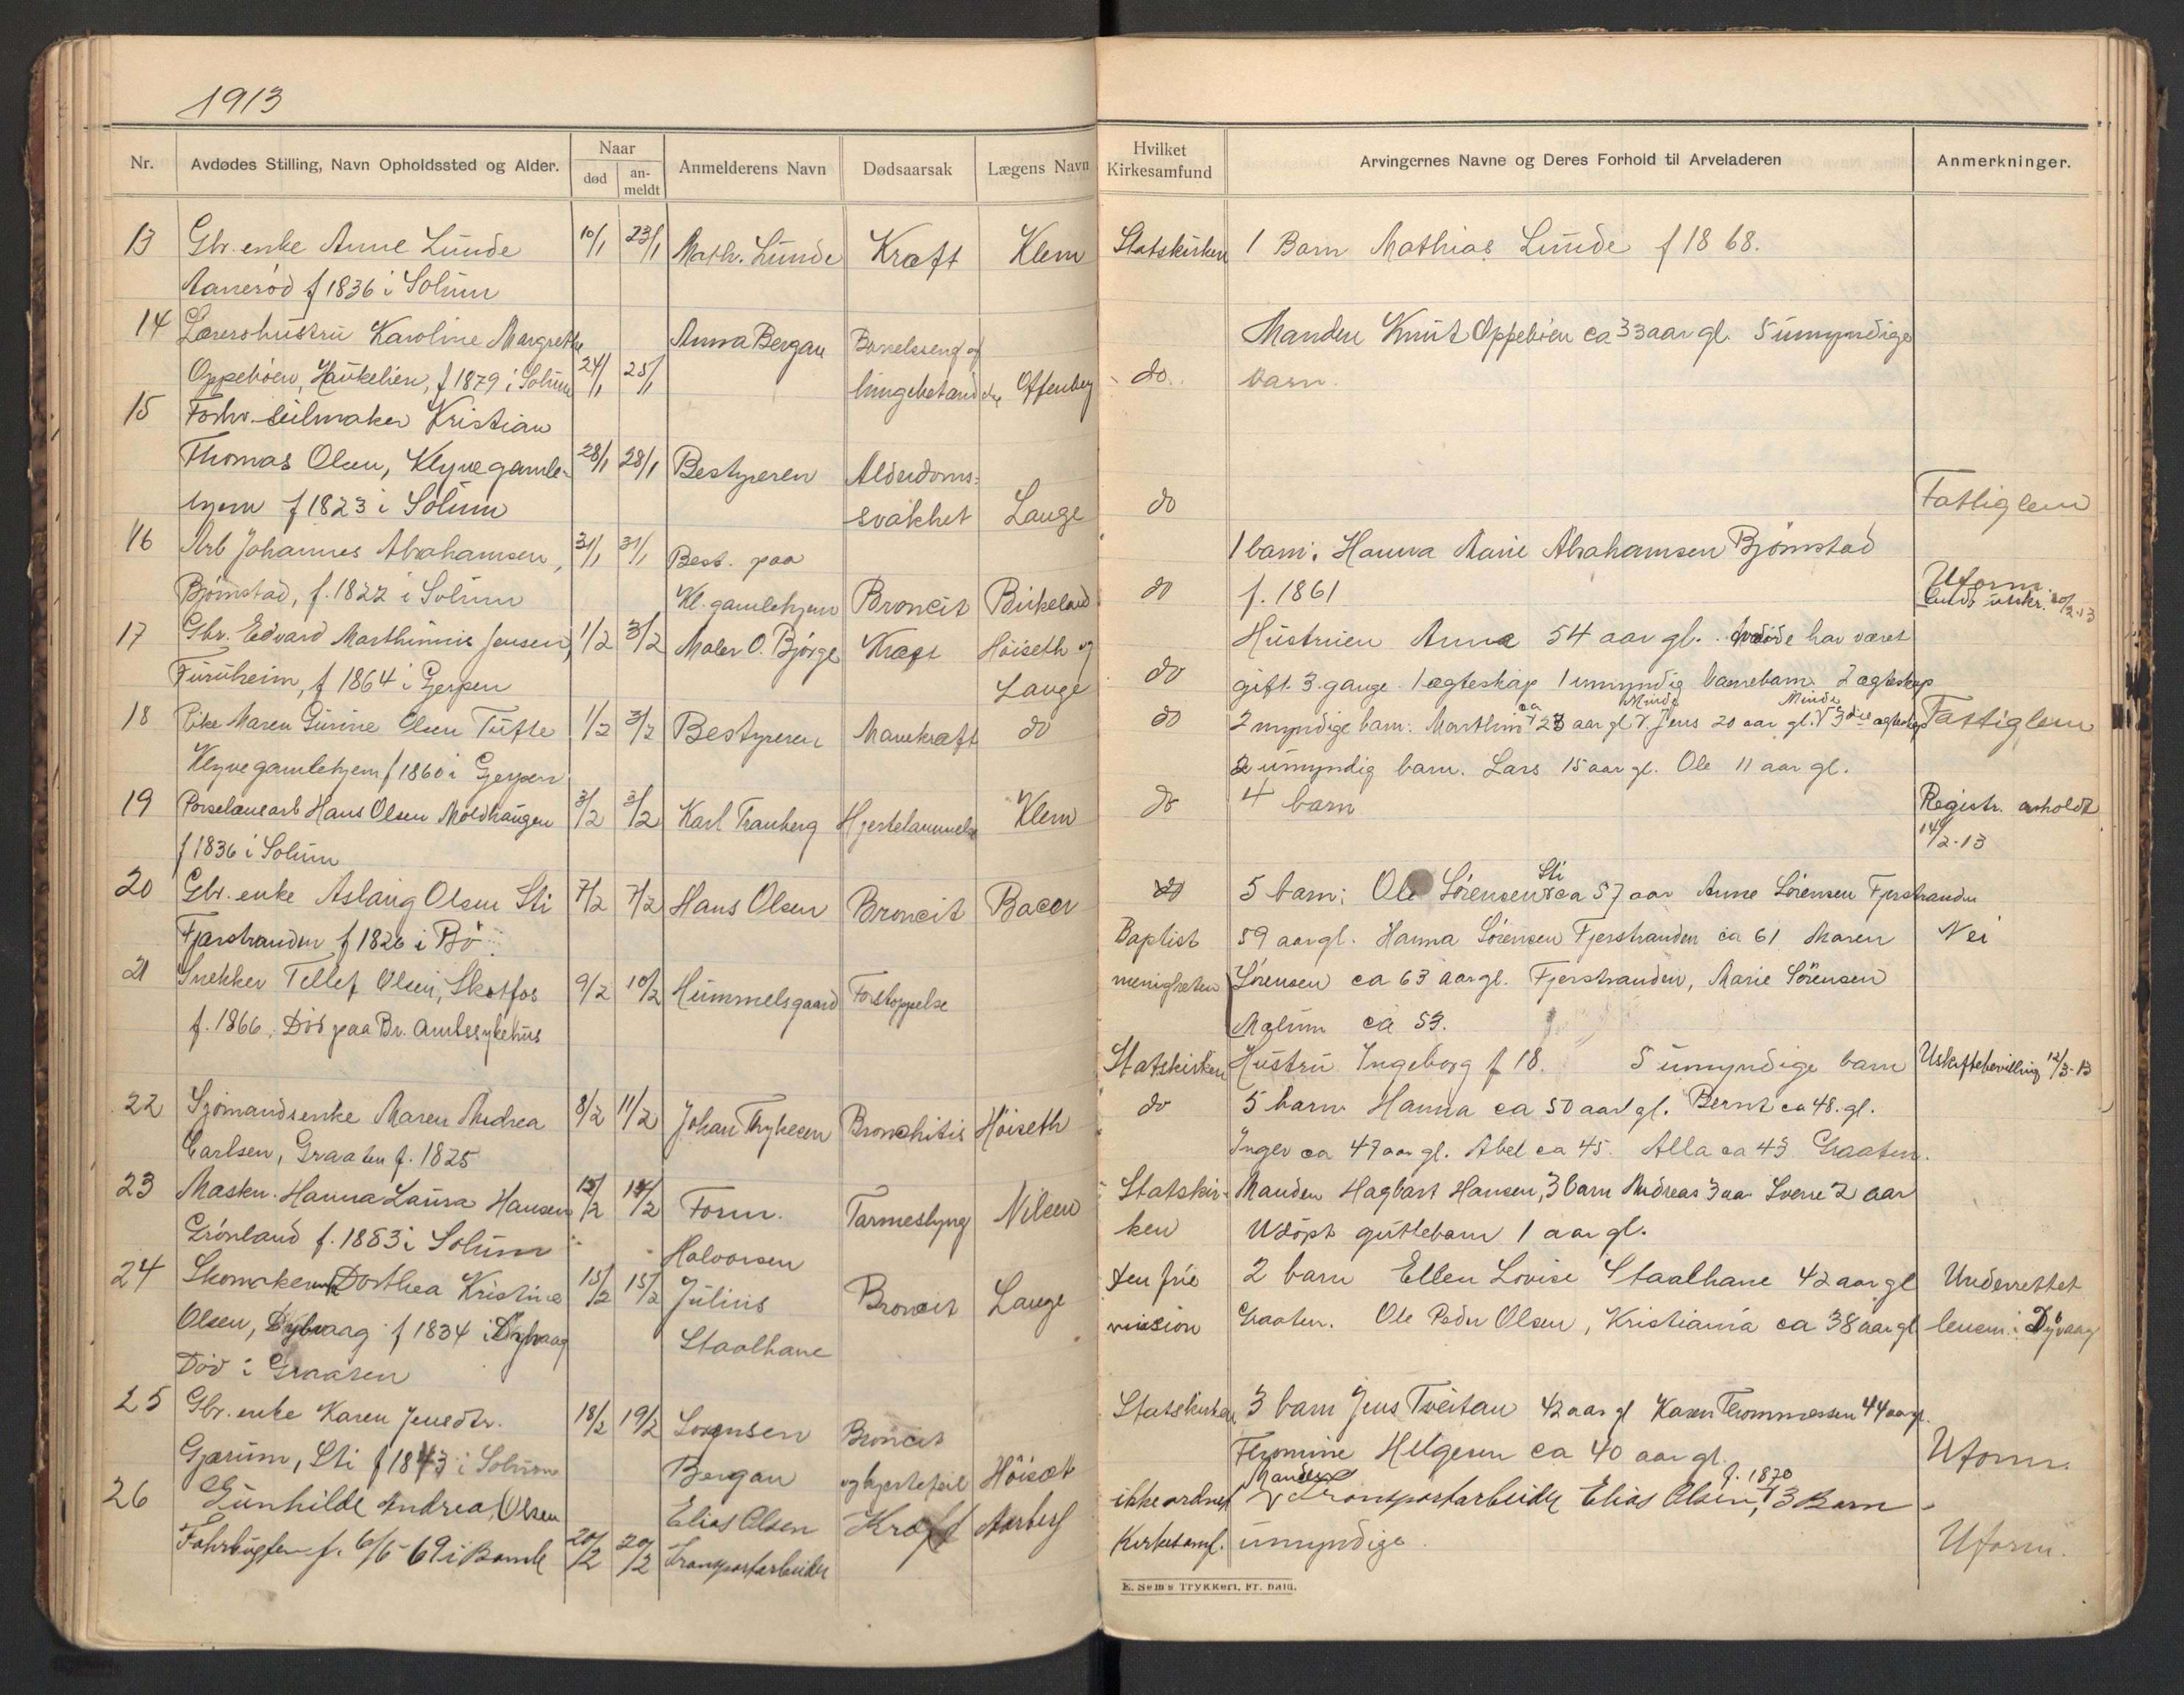 1913
Nr.
Avdødes Stilling, Navn Opholdssted og Alder.
Naar
død
an-
meldt
Anmelderens Navn
Dødsaarsak
Lægens Navn
Hvilket
Kirkesamfund
Arvingernes Navne og Deres Forhold til Arveladeren
Anmerkninger.
13 Gbr. enke Anne Lunde 10/1 23/1 Math. Lunde Kræft Klem Statskirken 1 Barn Mathias Lunde f 1868.
Aanerød f 1836 i Solum
14 Lærershustru Karoline Margrethe Anna Bergan Barselseng og Manden Knut Oppebøen ca 33 aar gl. 5 umyndige
Oppebøen, Haukelien, f 1879 i Solum 24/1 25/1 lungebetændelse Offenberg do. barn.
15 Forhv. seilmaker Kristian
Thomas Olsen, Klyve gamle- 28/1 28/1 Bestyreren Alderdoms-
hjem f 1823 i Solum svakhet Lauge do Fattiglem
16 Arb Johannes Abrahamsen, 31/1 31/1 Best. paa 1 barn: Hanna Marie Abrahamsen Bjørnstad
Bjørnstad, f. 1822 i Solum Kl. gamlehjem Broncit Birkeland do f. 1861 Uform.
utskr. 20/2-13
17 Gbr. Edvard Marthinius Jensen, 1/2 3/2 Maler O. Bjørge Kræft Höiseth og Hustruen Anna 54 aar gl. Avdøde har været
Furuheim, f 1864 i Gjerpen Lauge do gift 3 gange 1 ægteskap 1 umyndig barnebarn. 2 ægteskap
18 Pike Maren Gurine Olsen Tufte 1/2 3/2 Bestyreren Mavekræft do do 2 myndige barn: Marthin ca 23 aar gl. Jens 20 aar gl. 3die ægteskap Fattiglem
Klyve gamlehjem f 1860 i Gjerpen 2 umyndig barn. Lars 15 aar gl. Ole 11 aar gl.
19 Porselænsarb Hans Olsen Moldhaugen 3/2 3/2 Karl Tranberg Hjertelammelse Klem do 4 barn Registr. avholdt
f 1836 i Solum 14/2-13
20 Gbr. enke Aslaug Olsen Sti 7/2 7/2 Hans Olsen Broncit Bacer do 5 barn: Ole Sørensen Sti ca 57 aar Anne Sørensen Fjerstranden
Fjærstranden f 1826 i Bø Baptist 59 aar gl. Hanna Sörensen Fjerstranden ca 61 Maren Nei
21 Snekker Tellef Olsen, Skotfos 9/2 10/2 Hummelsgaard Forstoppelse menigheten Sörensen ca 63 aar gl. Fjerstranden, Marie Sörensen
f. 1866. Død paa Br. Amtssykehus Mælum ca 53.
Statskirken Hustru Ingeborg f 18. 5 umyndige barn Uskiftebevilling 12/3-13
22 Sjømandsenke Maren Andrea 8/2 11/2 Johan Thykesen Bronchitis Höiseth do 5 barn Hanna ca 50 aar gl. Bernt ca 48. gl.
Carlsen, Graaten f. 1825 Inger ca 47 aar gl. Abel ca 45. Alla ca 43 Graaten.
23 Maskn. Hanna Laura Hansen 13/2 14/2 Form. Tarmeslyng Nilsen Statskir- Manden Hagbart Hansen, 3 barn Andreas 3 aar Sverre 2 aar
Grönland f. 1883 i Solum Halvorsen ken Udöpt guttebarn 1 aar gl.
24 Dorthea Kristine 15/2 15/2 Julius Broncit Lauge den frie 2 barn Ellen Lovise Staalhane 42 aar gl Underrettet
Olsen, Dybvaag f 1834 i Dybvaag Staalhane mission Graaten. Ole Peder Olsen, Kristiania ca 38 aar gl lensm. i Dyvaag
Död i Graaten
25 Gbr. enke Karen Jensdtr. 18/2 19/2 Sørensen Broncit Statskirken 3 barn Jens Tveitan 42 aar gl Karen Thommersen 44 aar gl.
Gjærum, Sti f 1843 i Solum Bergan og hjertefeil Höiseth Thomine Helgesen ca 40 aar gl. Uform.
26 Gunhilde Andrea Olsen Elias Olsen Kræft Aarberg ikke ordnet Manden Transportarbeider Elias Olsen, f. 1870 3 Barn
f. 6/6-69 i Bamle 20/2 20/2 Transportarbeider Kirkesamf. umyndige. Uform.
E. Sem's Trykkeri, Fr. hald.